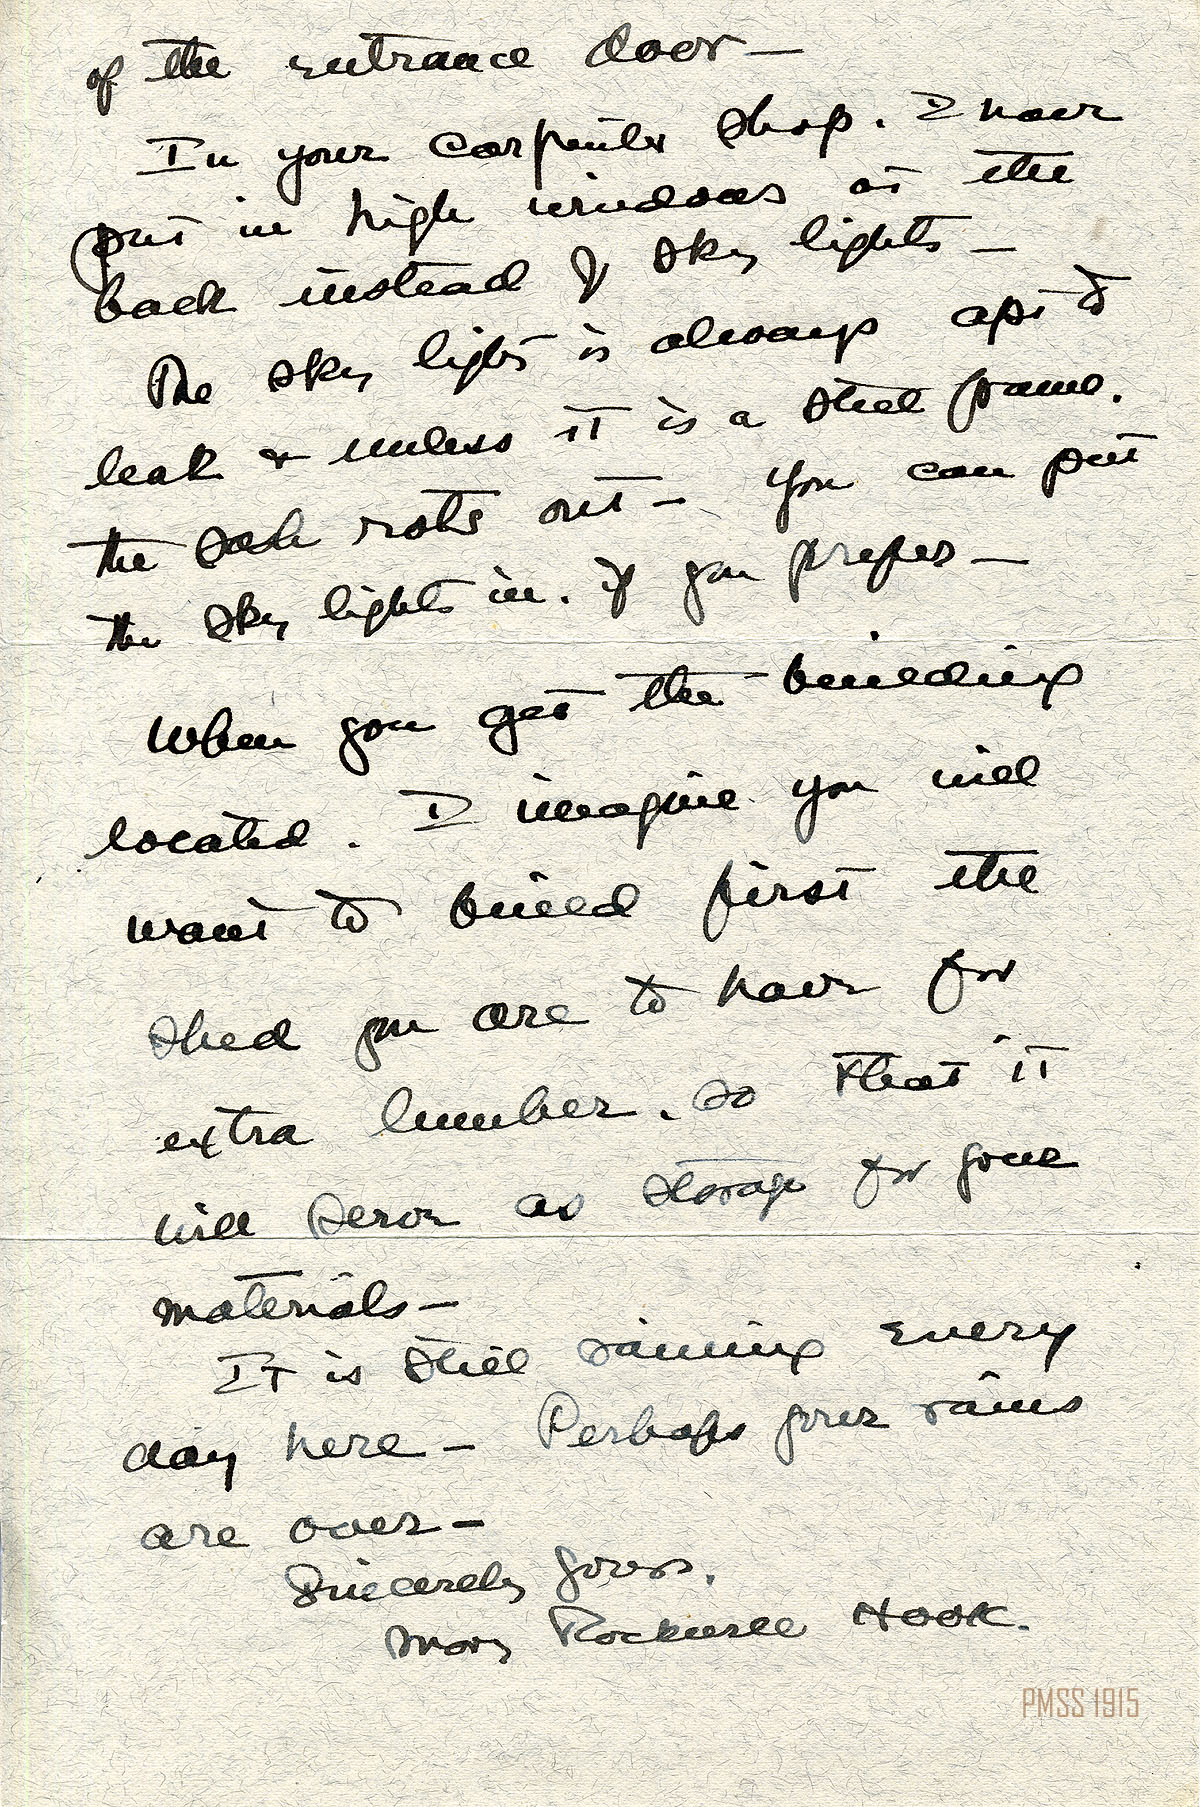 of the entrance door —
In your carpenter shop. I have
put in high windows at the
back instead of sky lights —
The sky lights is always apt to
leak & unless it is a steel frame.
the sash rots out — you can put
the sky lights in. if you prefer —
When you get the building
located. I imagine you will
want to build first the
shed you are to have for
extra lumber. so that it
will serve as storage for
materials —
It is still raining every
day here — Perhaps your rains
are over —
Sincerely yours.
Mary Rockwell Hook.
PMSS 1915